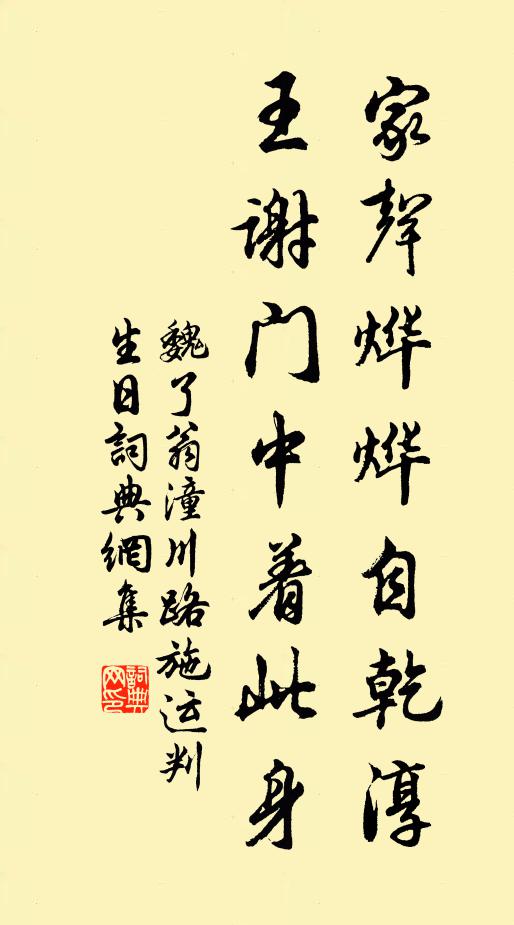 家聲烨烨自乾淳
王谢门中着此身
魏了翁潼川路施运判
生日詞典網集
詞典网印